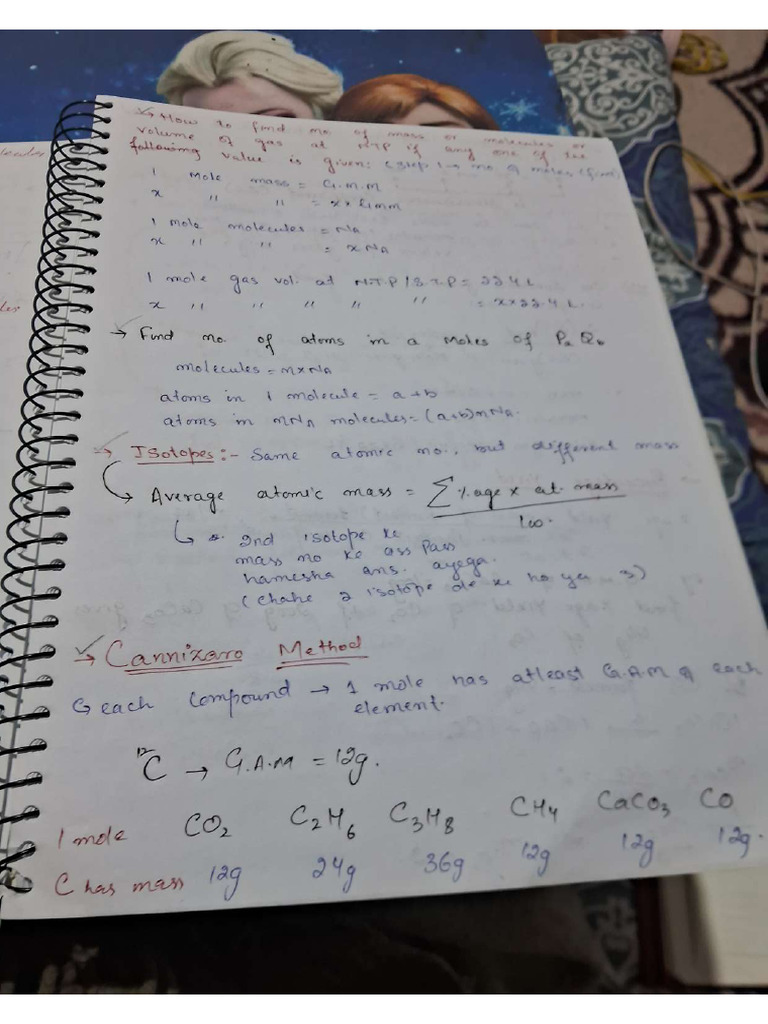 → How to find no. of mass or molecules or
volume of gas at NTP if any one of the
following value is given: (Step 1 → no. of moles find)
1 Mole mass = G.M.M
x " " = x × GMM
1 Mole molecules = NA
x " " = x NA
1 mole gas vol. at N.T.P/S.T.P = 22.4 L
x " " " " " = x×22.4 L.
→ Find no. of atoms in n moles of Pa Qb
molecules = n×NA
atoms in 1 molecule = a+b
atoms in nNA molecules = (a+b)nNA.
→ Isotopes :- Same atomic no., but different mass
Average atomic mass = ∑ %age × at. mass
100.
2nd isotope ke
mass no ke ass pass
hamesha ans. ayega.
(chahe 2 isotope de ke ho ya 3)
→ Cannizaro Method
each compound → 1 mole has atleast G.A.M of each
element.
¹²C → G.A.M = 12g.
1 mole CO₂ C₂H₆ C₃H₈ CH₄ CaCO₃ CO
C has mass 12g 24g 36g 12g 12g 12g.